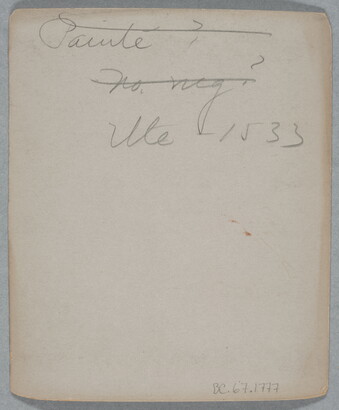 Painte ?
No. neg ?
Ute - 1533
BC.67.1777